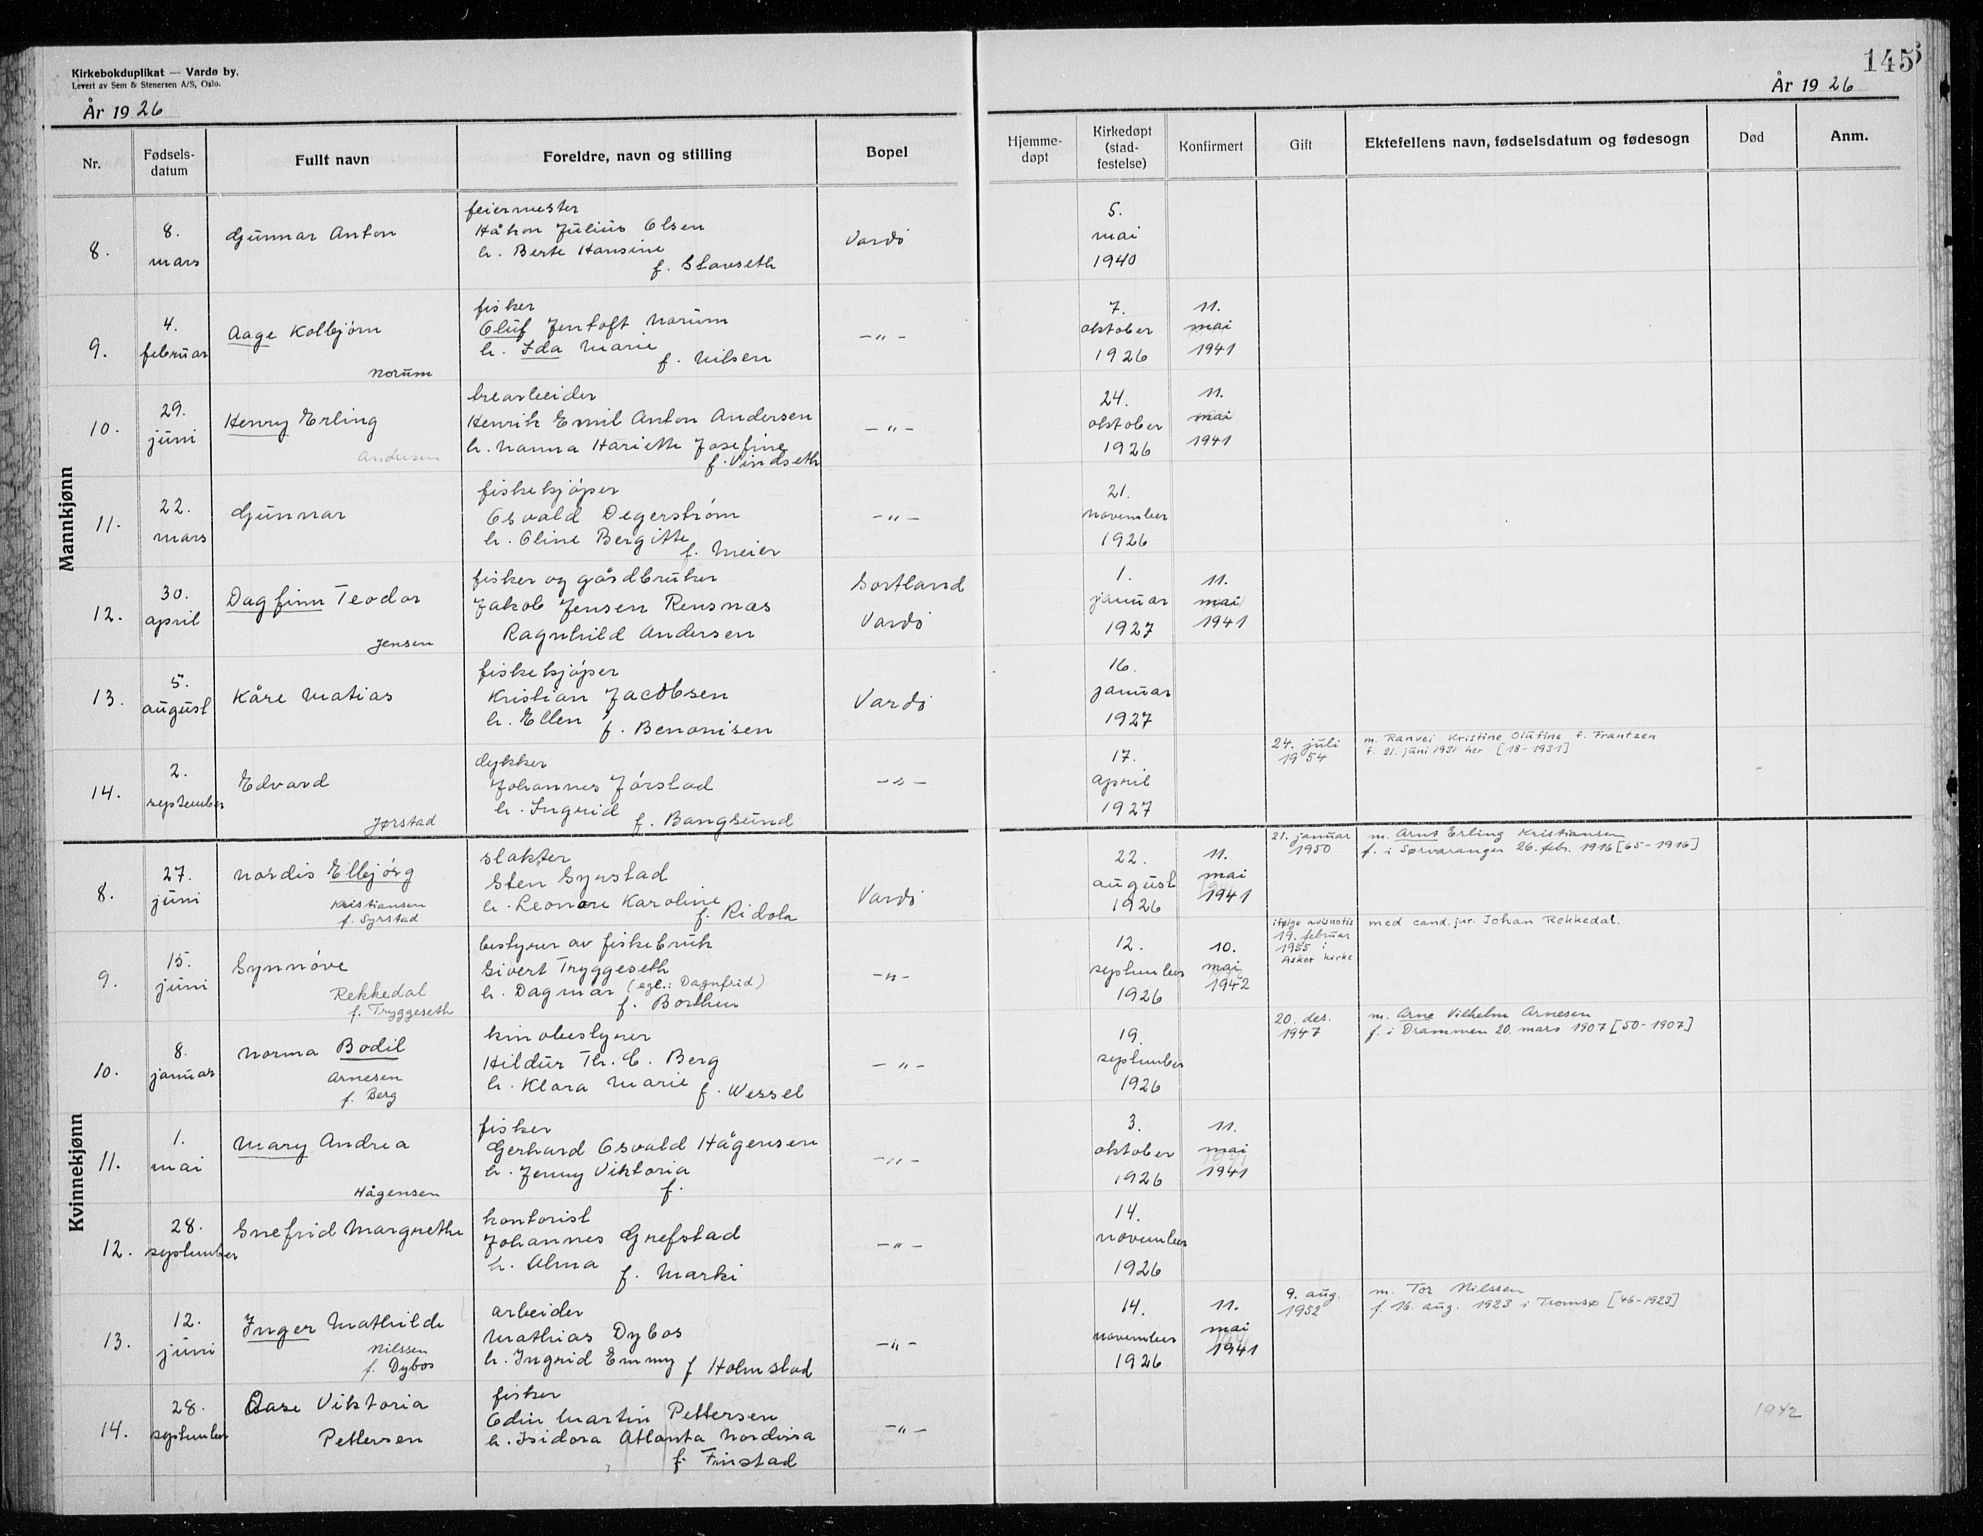 Kirkebokduplikat — Vardø by.
Levert av Sem & Stenersen A/S, Oslo.
År 1926
145
År 1926
Nr.
Fødsels-
datum
Fullt navn
Foreldre, navn og stilling
Bopel
Hjemme-
døpt
Kirkedøpt
(stad-
festelse)
Konfirmert
Gift
Ektefellens navn, fødselsdatum og fødesogn
Død
Anm.
Mannkjønn
8.
8.
mars
Gunnar Anton
feiermester
Håkon Julius Olsen
h. Berte Hansine
f. Slavseth
Vardø
5.
mai
1940
9.
4.
februar
Aage Kolbjørn
Norum
fisker
Oluf Jentoft Norum
h. Ida Marie
f. Nilsen
—"—
7.
oktober
1926
11.
mai
1941
10.
29.
juni
Henry Erling
Andersen
brearbeider
Henrik Emil Anton Andersen
h. Nanna Hariette Josefine
f. Vindseth
—"—
24.
oktober
1926
11.
mai
1941
11.
22.
mars
Gunnar
fiskekjøper
Osvald Degerstrøm
h. Oline Bergitte
f. Meier
—"—
21.
november
1926
12.
30.
april
Dagfinn Teodor
Jensen
fisker og gårdbruker
Jakob Jensen Rensnæs
Ragnhild Andersen
Sortland
Vardø
1.
januar
1927
11.
mai
1941
13.
5.
august
Kåre Matias
fiskekjøper
Kristian Jacobsen
h. Ellen
f. Benonisen
Vardø
16.
januar
1927
14.
2.
september
Edvard
Jørstad
dykker
Johannes Jørstad
h. Ingrid
f. Bangsund
—"—
17.
april
1927
24. juli
1954
m. Ranvei Kristine Olufine f. Frantzen
f. 21. juni 1931 her [18-1931]
Kvinnekjønn
8.
27.
juni
Nordis Ellbjørg
Kristiansen
f. Syrstad
slakter
Sten Syrstad
h. Leonore Karoline
f. Ridola
Vardø
22.
august
1926
11.
mai
1941
21. januar
1950
m. Arnt Erling Kristiansen
f. i Sørvaranger 26. febr. 1916 [65-1916]
9.
15.
juni
Synnøve
Rekkedal
f. Tryggeseth
bestyrer av fiskebruk
Sivert Tryggeseth
h. Dagmar (egl.: Dagnfrid)
f. Borthen
—"—
12.
september
1926
10.
mai
1942
ifølge avisnotis
19. februar
1955 i
Asker kirke
med cand. jur. Johan Rekkedal.
10.
8.
januar
Norma Bodil
Arnesen
f. Berg
kinobestyrer
Hildur Th. C. Berg
h. Klara Marie
f. Wessel
—"—
19.
september
1926
20. des.
1947
m. Arne Vilhelm Arnesen
f. i Drammen 20. mars 1907 [50-1907]
11.
1.
mai
Mary Andrea
Hågensen
fisker
Gerhard Osvald Hågensen
h. Jenny Viktoria
f.
—"—
3.
oktober
1926
11.
mai
1941
12.
28.
september
Snefrid Margrethe
kontorist
Johannes Grefstad
h. Alma
f. Marki
—"—
14.
november
1926
13.
12.
juni
Inger Mathilde
Nilssen
f. Dybos
arbeider
Mathias Dybos
h. Ingrid Emmy f Holmstad
—"—
14.
november
1926
11.
mai
1941
9. aug.
1952
m. Tor Nilssen
f. 16. aug. 1923 i Tromsø [46-1923]
14.
28.
september
Aase Viktoria
Pettersen
fisker
Odin Martin Pettersen
h. Isidora Atlanta Nordissa
f. Finstad
—"—
1942